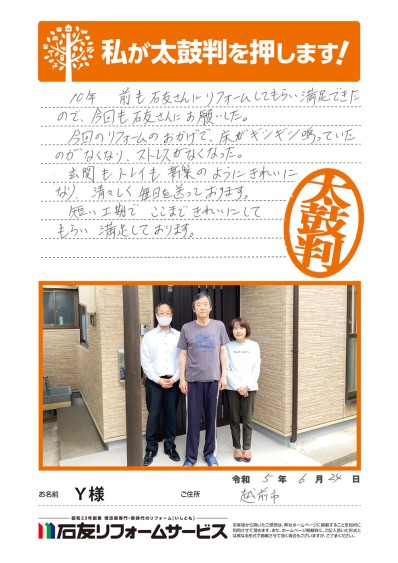 私が太鼓判を押します!
10年 前も石友さんにリフォームしてもらい満足できた
ので、今回も石友さんにお願いした。
今回のリフォームのおかげで、床がギシギシ鳴っていた
のがなくなり、ストレスがなくなった。
玄関もトイレも新築のようにきれいに
なり、清々しく毎日を送っております。
短い工期で ここまできれいにして
もらい 満足しております。
太鼓判
令和 5 年 6 月 24 日
お名前 Y様 ご住所 越前市
昭和23年創業 増改築専門・新時代のリフォーム「いしとも」
石友リフォームサービス
お客様から頂いたご感想は、弊社ホームページに掲載することを目的に
利用させて頂きます。また、ホームページ掲載時に、ご記入頂いた形式と
は異なる形式で掲載させて頂く場合もございますが、ご了承ください。